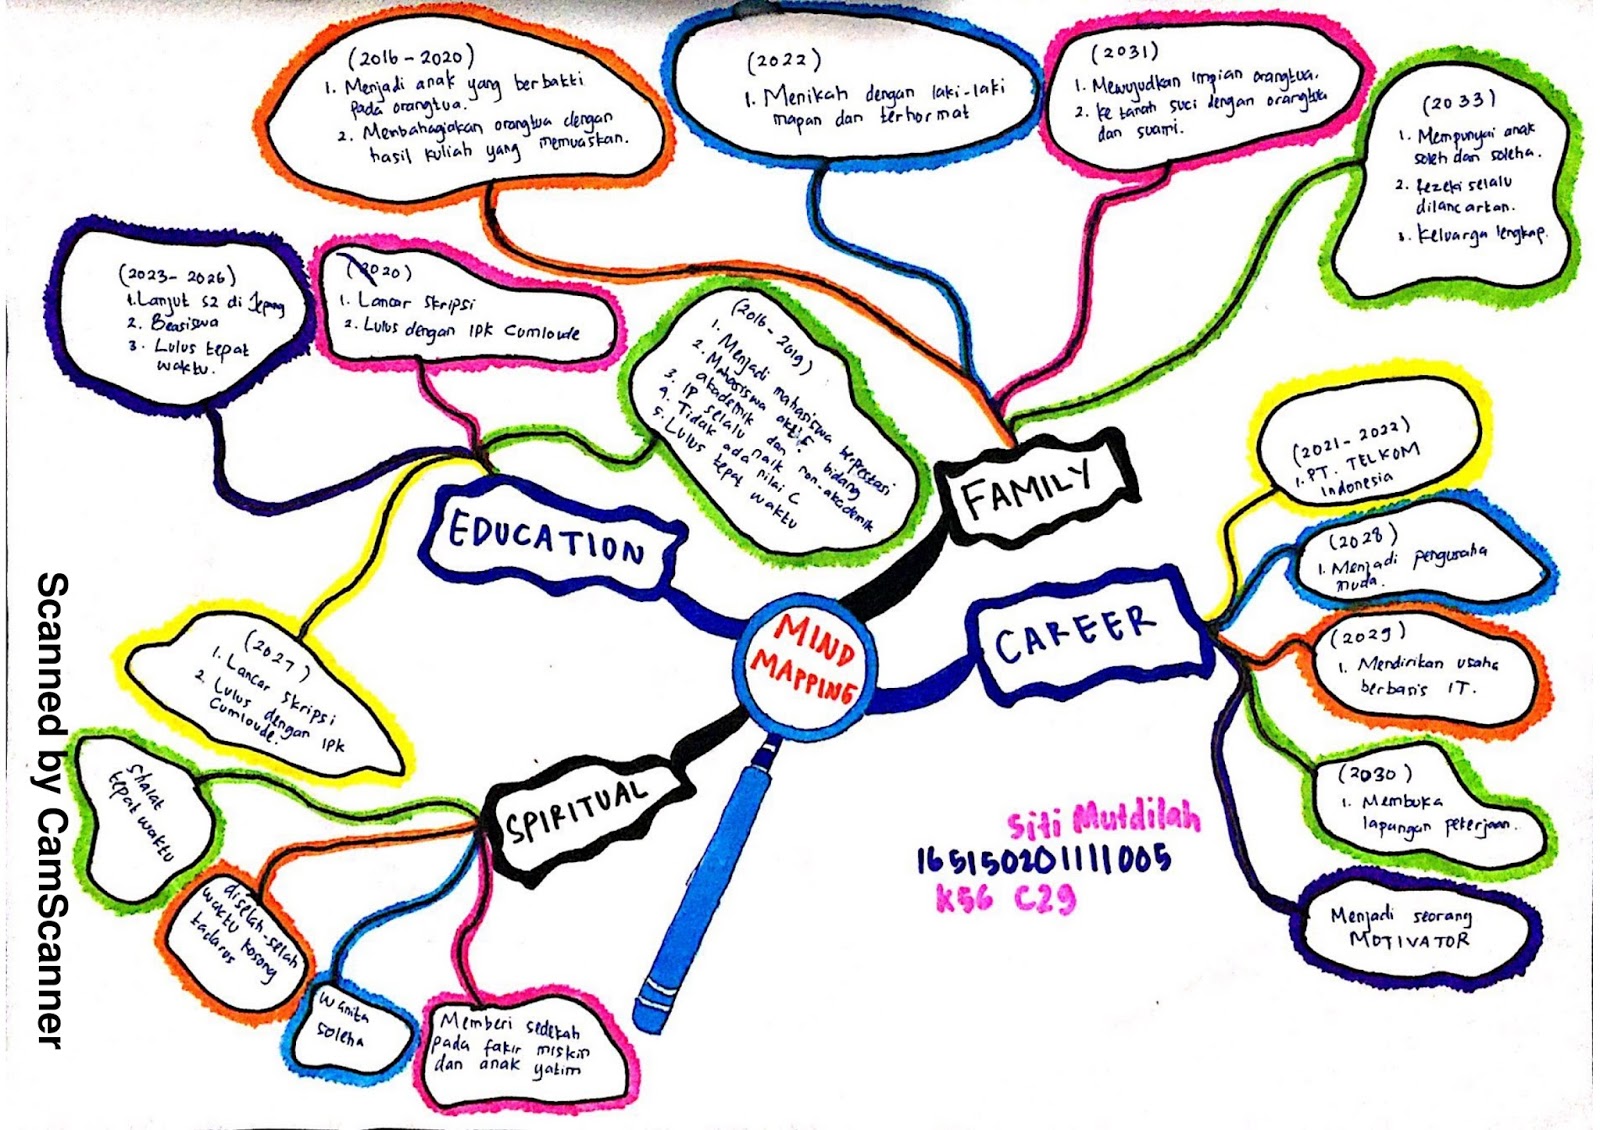 (2016 - 2020)
1. Menjadi anak yang berbakti
pada orangtua.
2. Membahagiakan orangtua dengan
hasil kuliah yang memuaskan.
(2022)
1. Menikah dengan laki-laki
mapan dan terhormat
(2031)
1. Mewujudkan impian orangtua.
2. ke tanah suci dengan orangtua
dan suami.
(2033)
1. Mempunyai anak
soleh dan soleha.
2. Rezeki selalu
dilancarkan.
3. Keluarga lengkap.
(2023 - 2026)
1. Lanjut S2 di Jepang
2. Beasiswa
3. Lulus tepat
waktu.
(2020)
1. Lancar skripsi
2. Lulus dengan IPK Cumloude
(2016 - 2019)
1. Menjadi mahasiswa berprestasi
2. Mahasiswa aktif bidang
akademik dan non-akademik
3. IP selalu naik
4. Tidak ada nilai C
5. Lulus tepat waktu
FAMILY
EDUCATION
(2021 - 2022)
1. PT. TELKOM
Indonesia
(2028)
1. Menjadi pengusaha
muda.
(2029)
1. Mendirikan usaha
berbasis IT.
(2030)
1. Membuka
lapangan pekerjaan.
Menjadi seorang
MOTIVATOR
CAREER
MIND
MAPPING
(2027)
1. Lancar skripsi
2. Lulus dengan IPK
Cumloude.
SPIRITUAL
shalat
tepat waktu
diselah-selah
waktu kosong
tadarus
wanita
soleha
Memberi sedekah
pada fakir miskin
dan anak yatim
Siti Mutdilah
165150201111005
K56 C29
Scanned by CamScanner